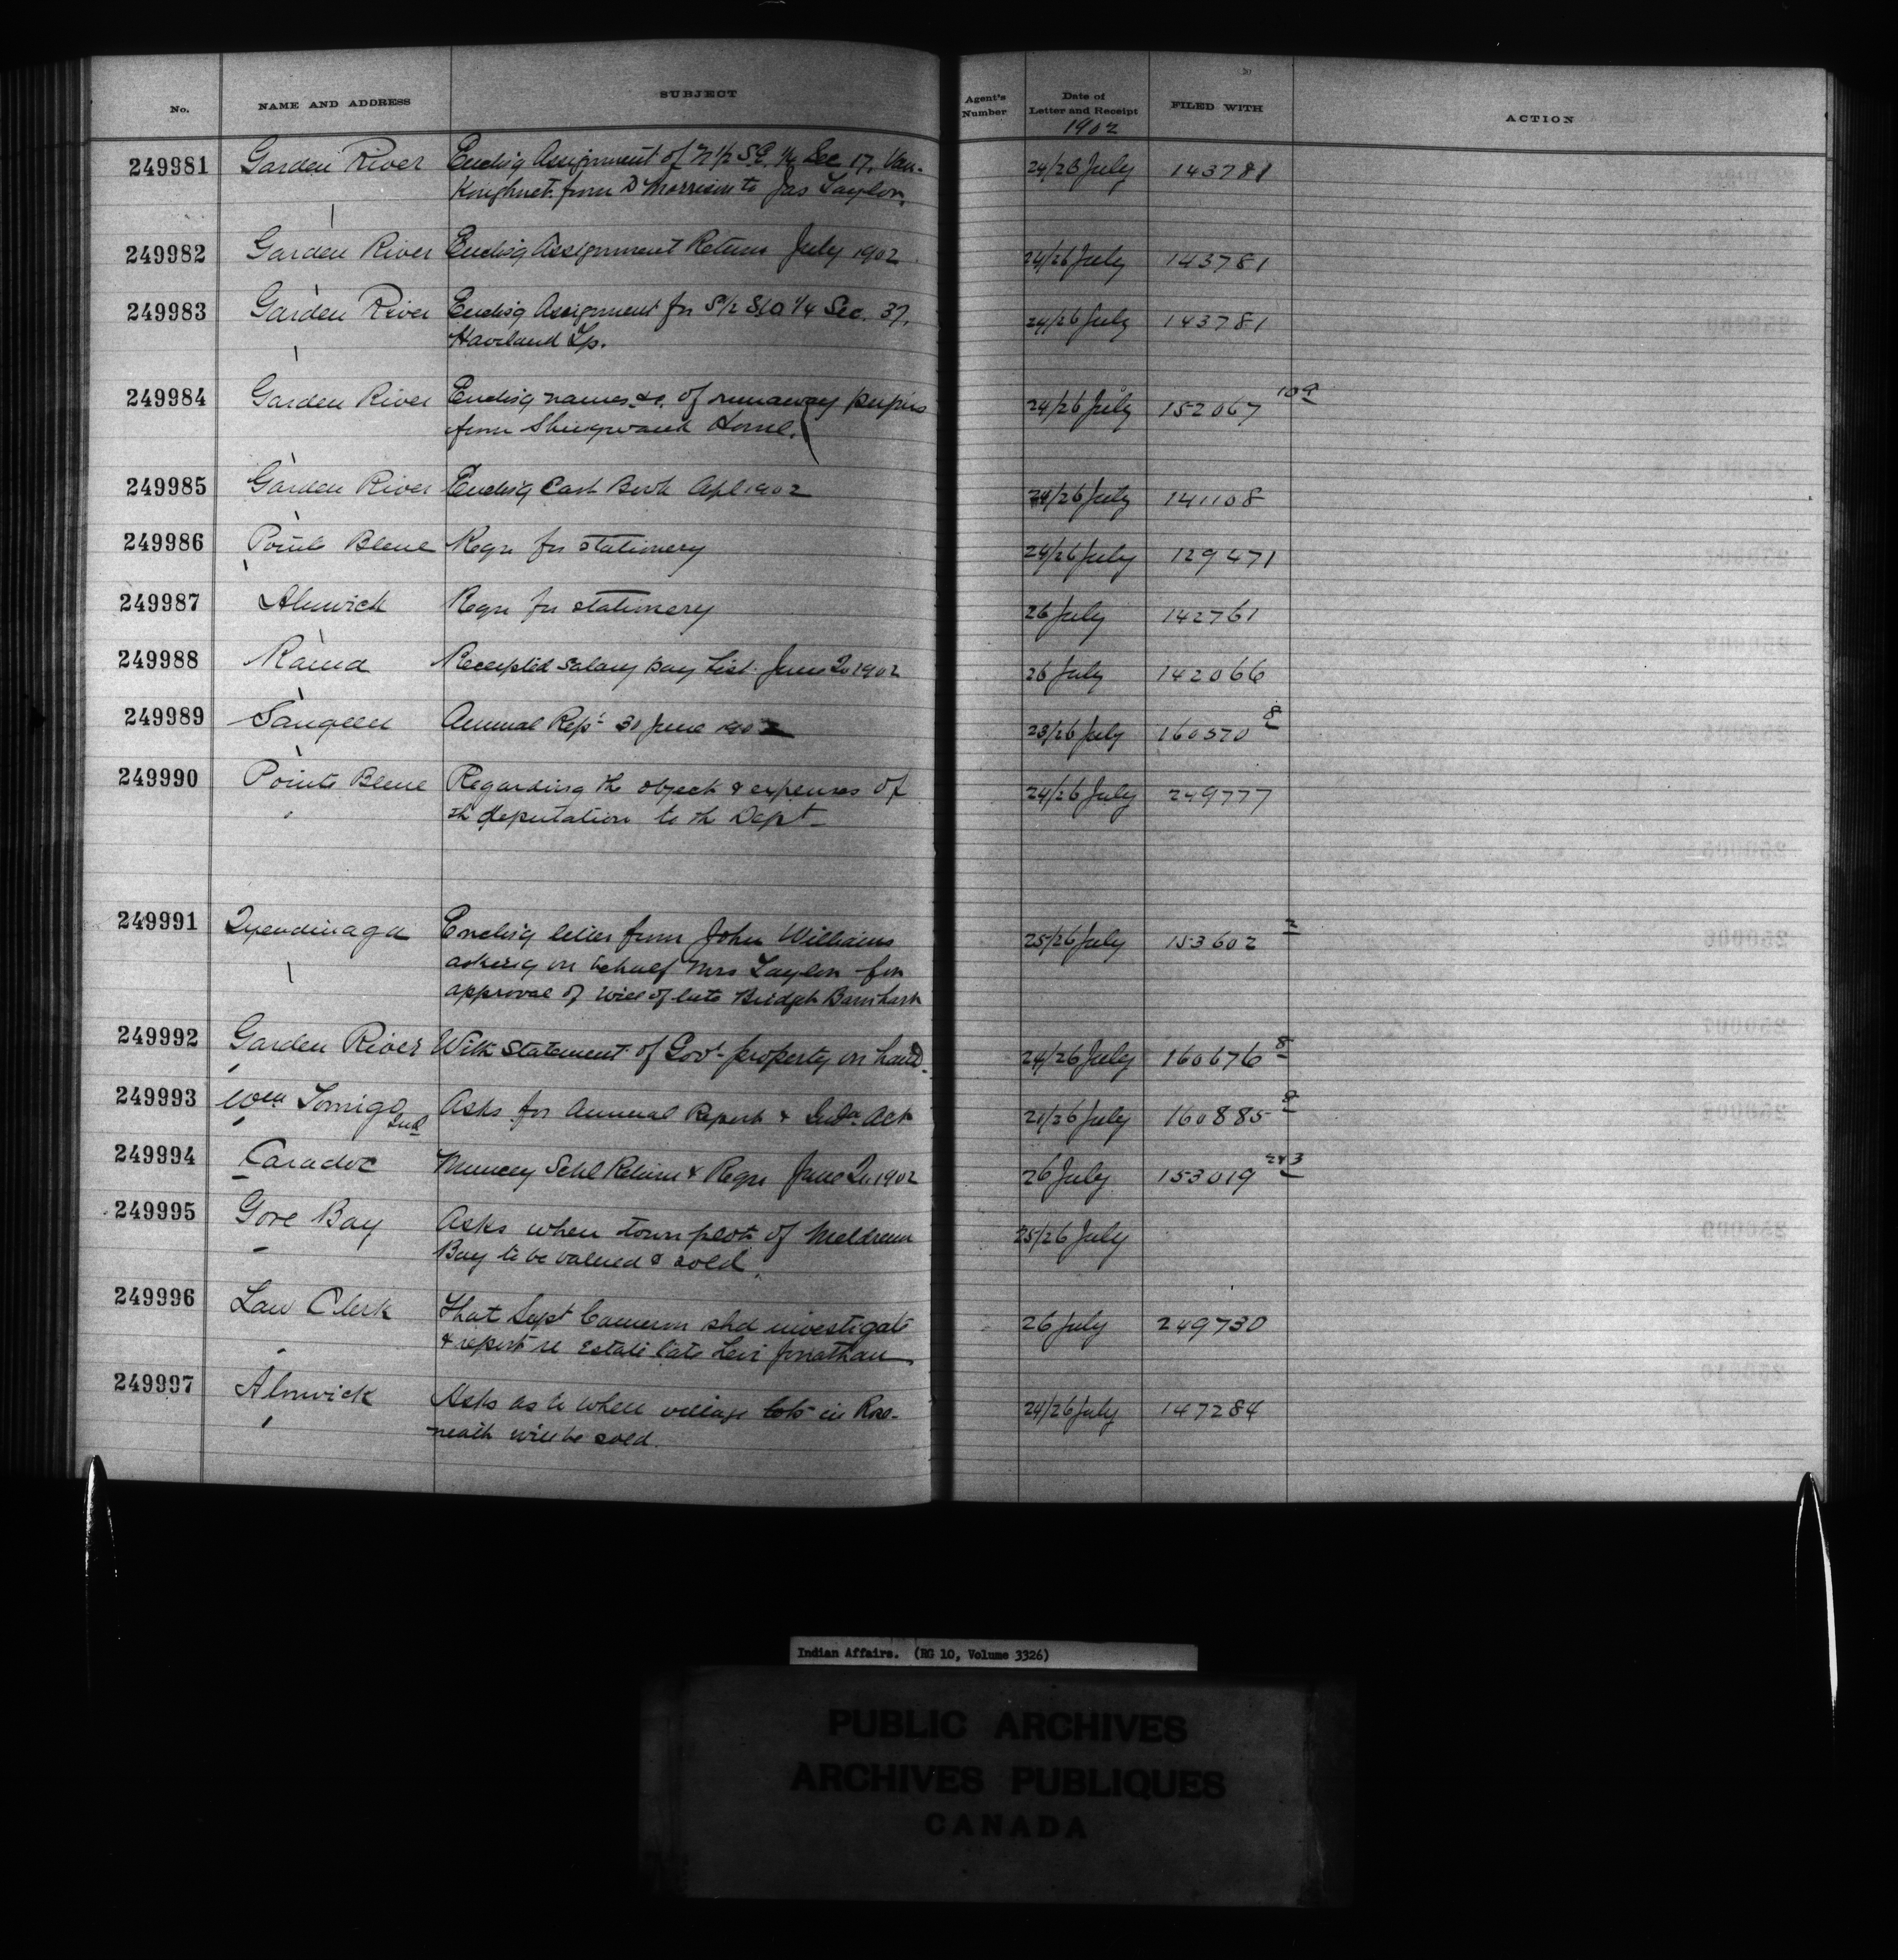 No. NAME AND ADDRESS SUBJECT Agent's Number Date of Letter and Receipt FILED WITH ACTION
1902
249981 Garden River Encl'g Assignment of N 1/2 S.E. 1/4 Sec 17, Van- 24/26 July 143781
Koughnet from D Morrison to Jas Taylor.
249982 Garden River Encl'g Assignment Return July 1902 24/26 July 143781
249983 Garden River Encl'g Assignment for S 1/2 S.W. 1/4 Sec. 37, 24/26 July 143781
Haviland Tp.
249984 Garden River Encl'g names &c. of runaway pupils 24/26 July 152067 109
from Shingwauk Home.
249985 Garden River Encl'g Cash Book Apl 1902 24/26 July 141108
249986 Pointe Bleue Reqn for stationery 24/26 July 129471
249987 Alnwick Reqn for stationery 26 July 142761
249988 Rama Receipted Salary pay List June Qr 1902 26 July 142066
249989 Saugeen Annual Rept 30 June 1902 23/26 July 160570 8
249990 Pointe Bleue Regarding the object & expenses of 24/26 July 249777
th deputation to th Dept
249991 Tyendinaga Encl'g letter from John Williams 25/26 July 153602 2
asking on behalf Mrs Taylor for
approval of will of late Bridget Barnhart
249992 Garden River With Statement of Govt property on hand. 24/26 July 160676 8
249993 Wm Asks for Annual Report & Indn Act 21/26 July 160885
249994 Caradoc Muncey Schl Return & Reqn June Qr 1902 26 July 153019 243
249995 Gore Bay Asks when town plot of Meldrum 25/26 July
Bay to be valued & sold.
249996 Law Clerk That Supt Cameron shd investigate 26 July 249730
& report re Estate late Levi Jonathan
249997 Alnwick Asks as to when village lots in Rose- 24/26 July 147284
neath will be sold.
Indian Affairs. (RG 10, Volume 3326)
PUBLIC ARCHIVES
ARCHIVES PUBLIQUES
CANADA